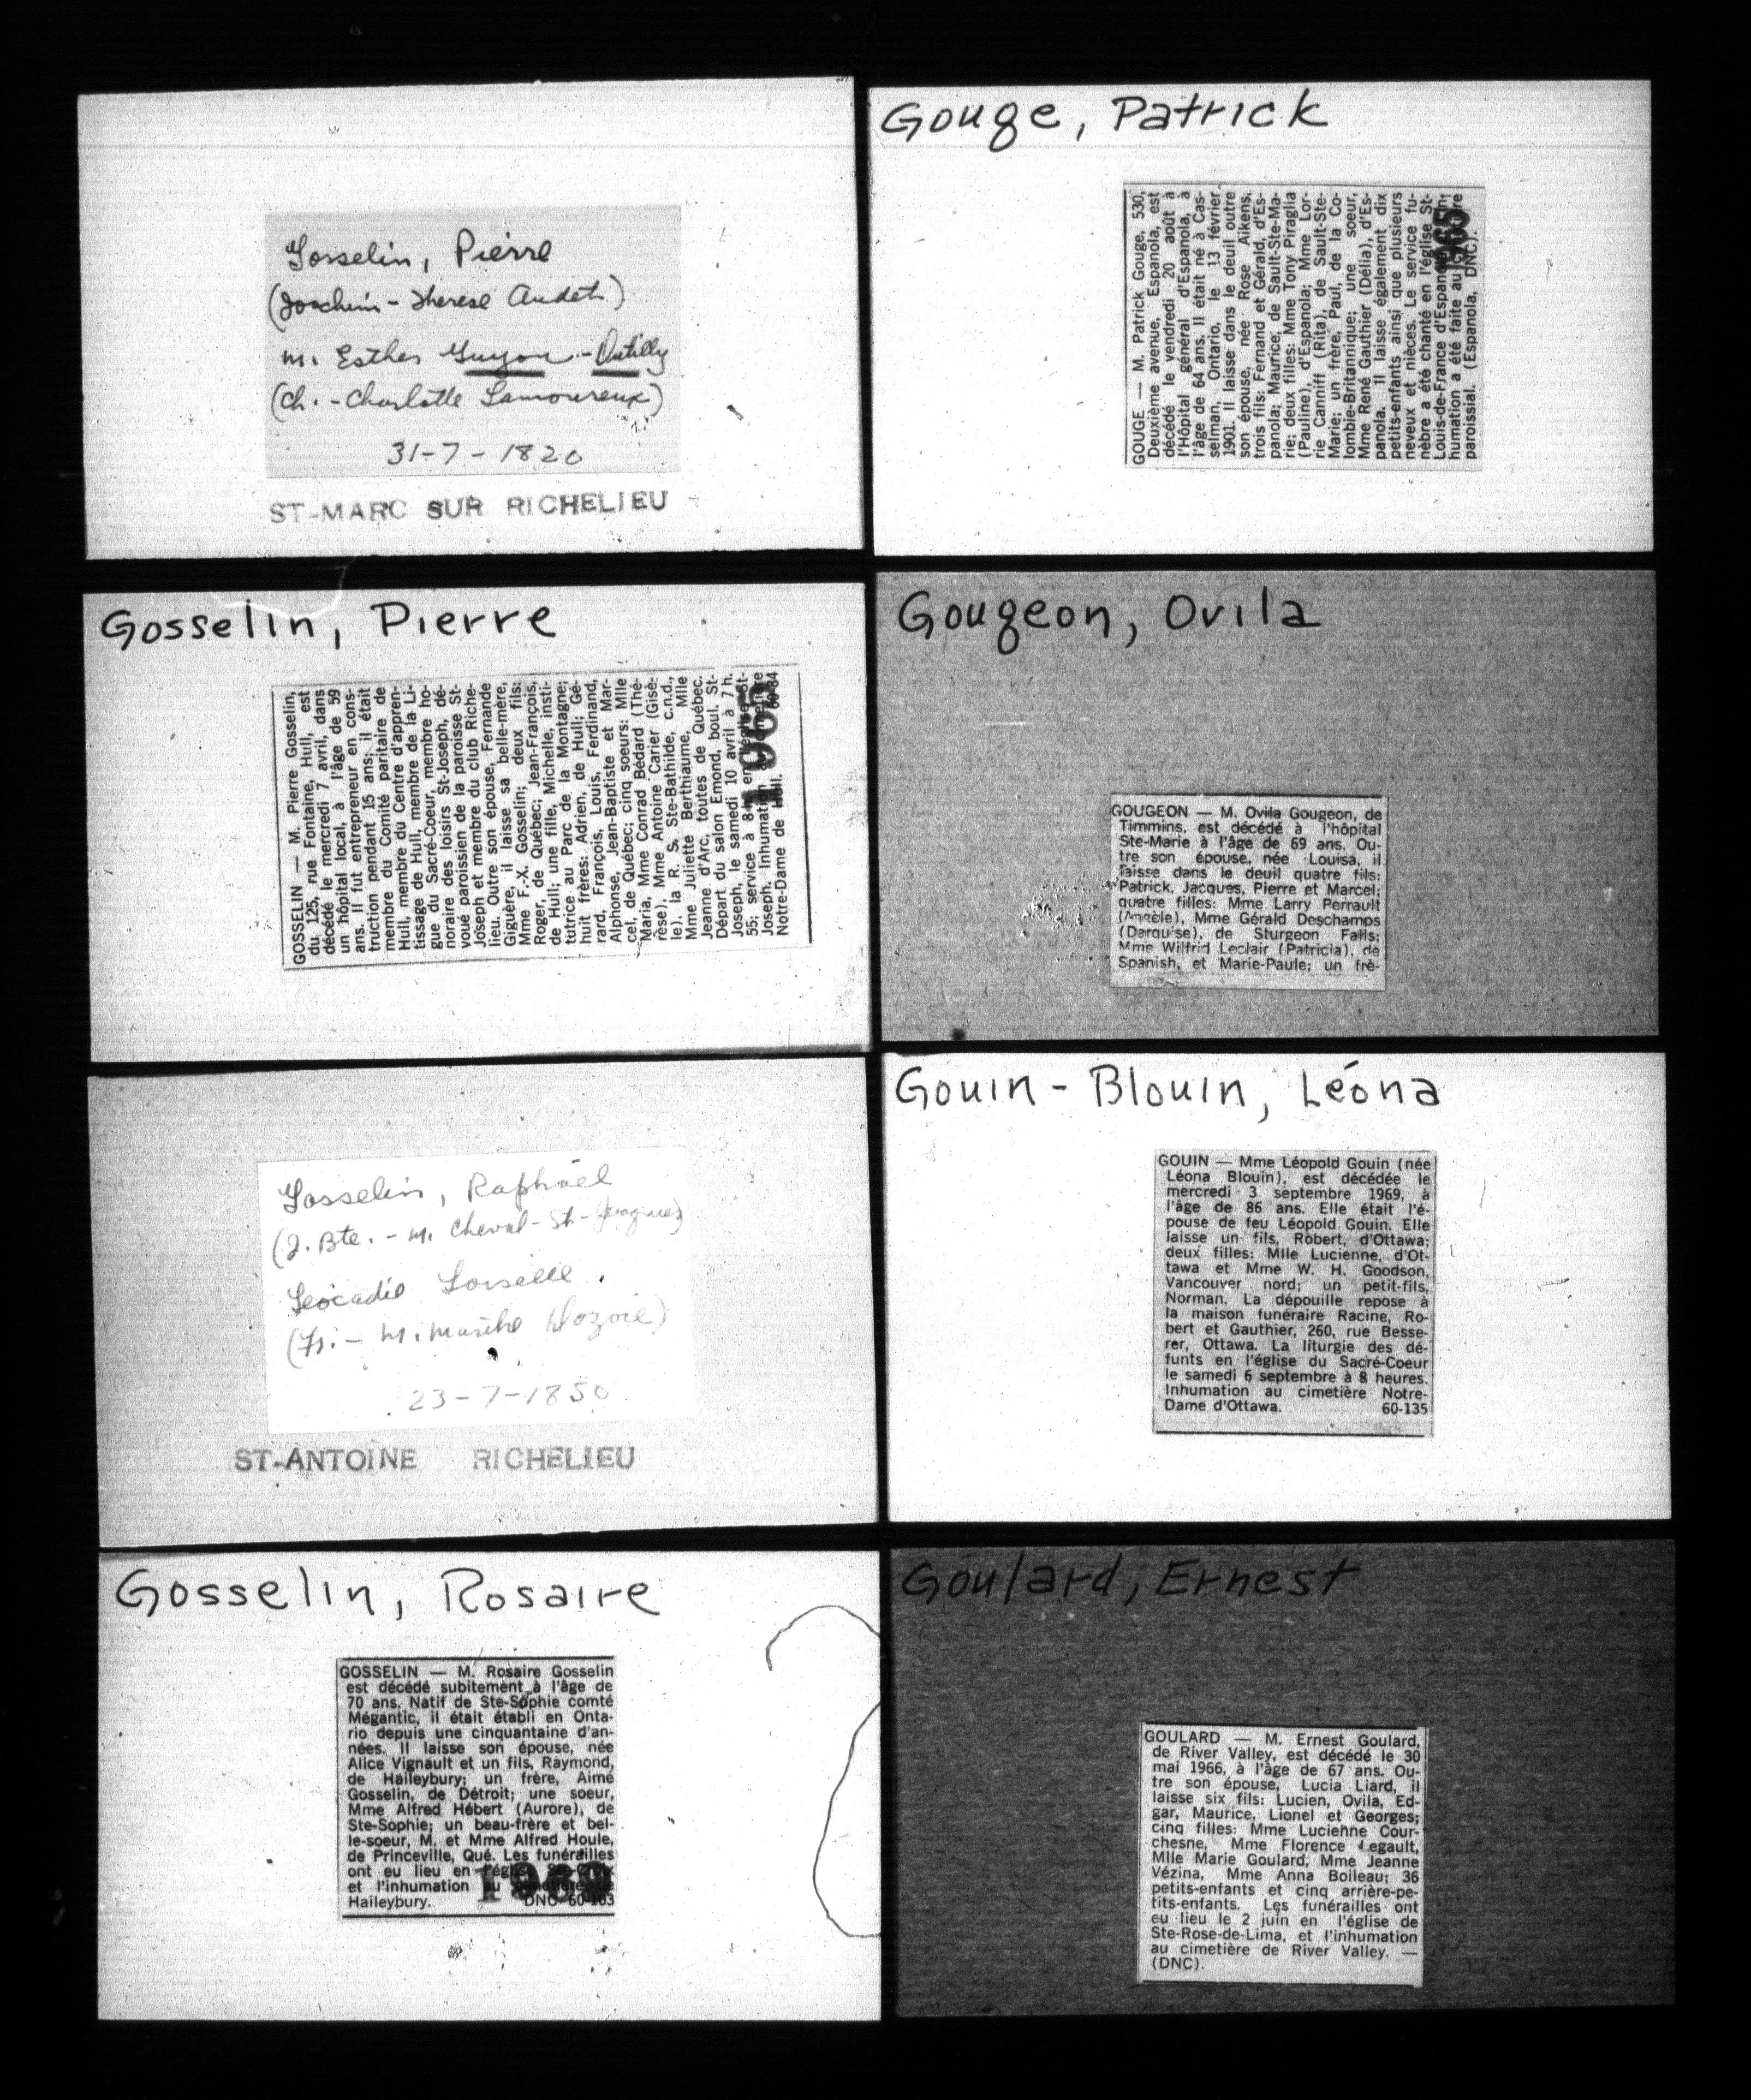 Gosselin, Pierre
(Joachim - Therese Audet)
m. Esther Guyon - Dutilly
(Ch. - Charlotte Lamoureux)
31-7-1820
ST-MARC SUR RICHELIEU
Gosselin, Pierre
GOSSELIN — M. Pierre Gosselin,
du 125, rue Fontaine, Hull, est
décédé le mercredi 7 avril, dans
un hôpital local, à l'âge de 59
ans. Il fut entrepreneur en cons-
truction pendant 15 ans; il était
membre du Comité paritaire de
Hull, membre du Centre d'appren-
tissage de Hull, membre de la Li-
gue du Sacré-Coeur, membre ho-
noraire des loisirs St-Joseph, dé-
voué paroissien de la paroisse St-
Joseph et membre du club Riche-
lieu. Outre son épouse, Fernande
Giguère, il laisse sa belle-mère,
Mme F.-X. Gosselin; deux fils:
Roger, de Québec; Jean-François,
de Hull; une fille, Michelle, insti-
tutrice au Parc de la Montagne;
huit frères: Adrien, de Hull; Gé-
rard, François, Louis, Ferdinand,
Alphonse, Jean-Baptiste et Mar-
cel, de Québec; cinq soeurs: Mlle
Maria, Mme Conrad Bédard (Thé-
rèse), Mme Antoine Carier (Gisè-
le), la R. S. Ste-Bathilde, c.n.d.,
Mme Juliette Berthiaume, Mlle
Jeanne d'Arc, toutes de Québec.
Départ du salon Emond, boul. St-
Joseph, le samedi 10 avril à 7 h.
55; service à 8 h. en l'église St-
Joseph. Inhumation
Notre-Dame de Hull. 60-84
1965
Gosselin, Raphäel
(J. Bte. - M. Cheval - St-Jacques)
Léocadie Loiselle.
(Fr. - M. Dozois)
23-7-1850
ST-ANTOINE RICHELIEU
Gosselin, Rosaire
GOSSELIN — M. Rosaire Gosselin
est décédé subitement à l'âge de
70 ans. Natif de Ste-Sophie comté
Mégantic, il était établi en Onta-
rio depuis une cinquantaine d'an-
nées. Il laisse son épouse, née
Alice Vignault et un fils, Raymond,
de Haileybury; un frère, Aimé
Gosselin, de Détroit; une soeur,
Mme Alfred Hébert (Aurore), de
Ste-Sophie; un beau-frère et bel-
le-soeur, M. et Mme Alfred Houle,
de Princeville, Qué. Les funérailles
ont eu lieu en l'église Ste-Croix
et l'inhumation au cimetière de
Haileybury. DNC- 60-103
Gouge, Patrick
GOUGE — M. Patrick Gouge, 530,
Deuxième avenue, Espanola, est
décédé le vendredi 20 août à
l'Hôpital général d'Espanola, à
l'âge de 64 ans. Il était né à Cas-
selman, Ontario, le 13 février
1901. Il laisse dans le deuil outre
son épouse, née Rose Aikens,
trois fils: Fernand et Gérald, d'Es-
panola; Maurice, de Sault-Ste-Ma-
rie; deux filles: Mme Tony Piraglia
(Pauline), d'Espanola; Mme Lor-
rie Canniff (Rita), de Sault-Ste-
Marie; un frère, Paul, de la Co-
lombie-Britannique; une soeur,
Mme René Gauthier (Délia), d'Es-
panola. Il laisse également dix
petits-enfants ainsi que plusieurs
neveux et nièces. Le service fu-
nèbre a été chanté en l'église St-
Louis-de-France d'Espanola. L'in-
humation a été faite au cimetière
paroissial. (Espanola, DNC).
1965
Gougeon, Ovila
GOUGEON — M. Ovila Gougeon, de
Timmins, est décédé à l'hôpital
Ste-Marie à l'âge de 69 ans. Ou-
tre son épouse, née Louisa, il
laisse dans le deuil quatre fils:
Patrick, Jacques, Pierre et Marcel;
quatre filles: Mme Larry Perrault
(Angèle), Mme Gérald Deschamps
(Darquise), de Sturgeon Falls;
Mme Wilfrid Leclair (Patricia), de
Spanish, et Marie-Paule; un frè-
Gouin-Blouin, Léona
GOUIN — Mme Léopold Gouin (née
Léona Blouin), est décédée le
mercredi 3 septembre 1969, à
l'âge de 86 ans. Elle était l'é-
pouse de feu Léopold Gouin. Elle
laisse un fils, Robert, d'Ottawa;
deux filles: Mlle Lucienne, d'Ot-
tawa et Mme W. H. Goodson,
Vancouver nord; un petit-fils,
Norman. La dépouille repose à
la maison funéraire Racine, Ro-
bert et Gauthier, 260, rue Besse-
rer, Ottawa. La liturgie des dé-
funts en l'église du Sacré-Coeur
le samedi 6 septembre à 8 heures.
Inhumation au cimetière Notre-
Dame d'Ottawa. 60-135
Goulard, Ernest
GOULARD — M. Ernest Goulard,
de River Valley, est décédé le 30
mai 1966, à l'âge de 67 ans. Ou-
tre son épouse, Lucia Liard, il
laisse six fils: Lucien, Ovila, Ed-
gar, Maurice, Lionel et Georges;
cinq filles: Mme Lucienne Cour-
chesne, Mme Florence Legault,
Mlle Marie Goulard, Mme Jeanne
Vézina, Mme Anna Boileau; 36
petits-enfants et cinq arrière-pe-
tits-enfants. Les funérailles ont
eu lieu le 2 juin en l'église de
Ste-Rose-de-Lima, et l'inhumation
au cimetière de River Valley. —
(DNC).